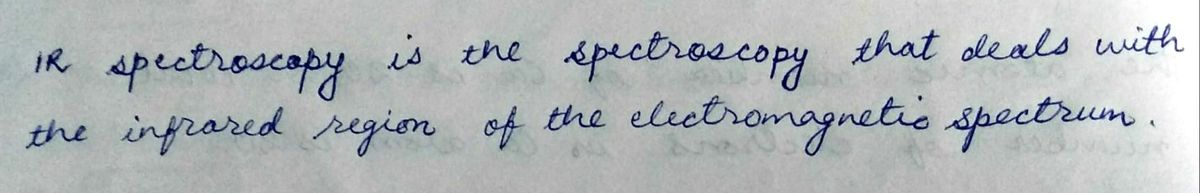 IR spectroscopy is the spectroscopy that deals with
the infrared region of the electromagnetic spectrum.